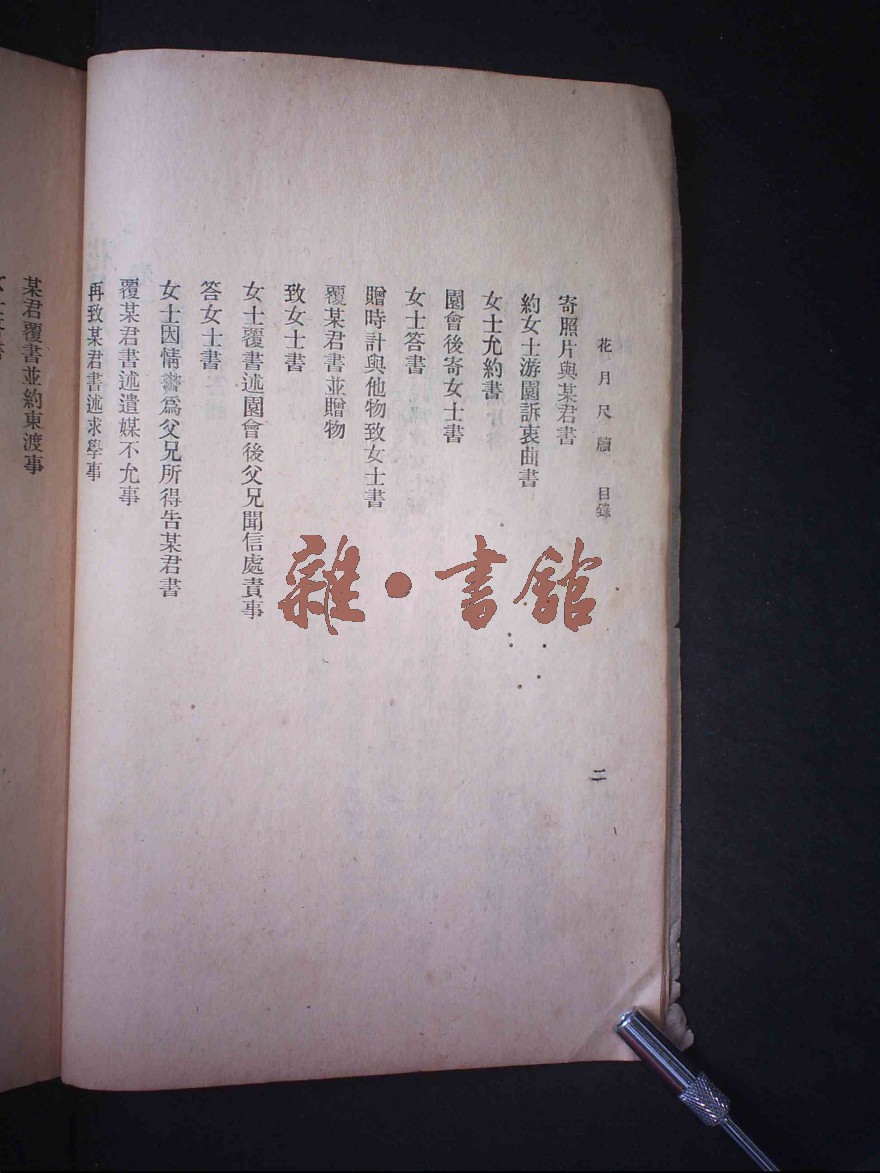 花月尺牘 目錄
二
寄照片與某君書
約女士游園訴衷曲書
女士允約書
園會後寄女士書
女士答書
贈時計與他物致女士書
覆某君書並贈物
致女士書
女士覆書述園會後父兄聞信處責事
答女士書
女士因情書爲父兄所得告某君書
覆某君書述遣媒不允事
再致某君書述求學事
某君覆書並約東渡事
雜·書館